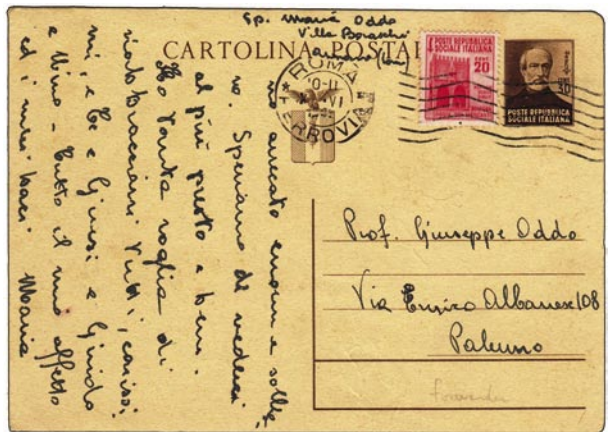 Sp. Maria Oddo
Villa
CARTOLINA POSTALE
ROMA
FERROVIA
POSTE REPUBBLICA
SOCIALE ITALIANA
CENT
20
30
POSTE REPUBBLICA
SOCIALE ITALIANA
Prof. Giuseppe Oddo
Via Enrico Albanese 108
Palermo
no. Speriamo di vederci
al più presto e bene.
Ho tanta voglia di
riabbracciarvi tutti, carissi
mi, a te e Giusi e Guido
e Nino. Tutto il mio affetto
ed i miei baci Maria